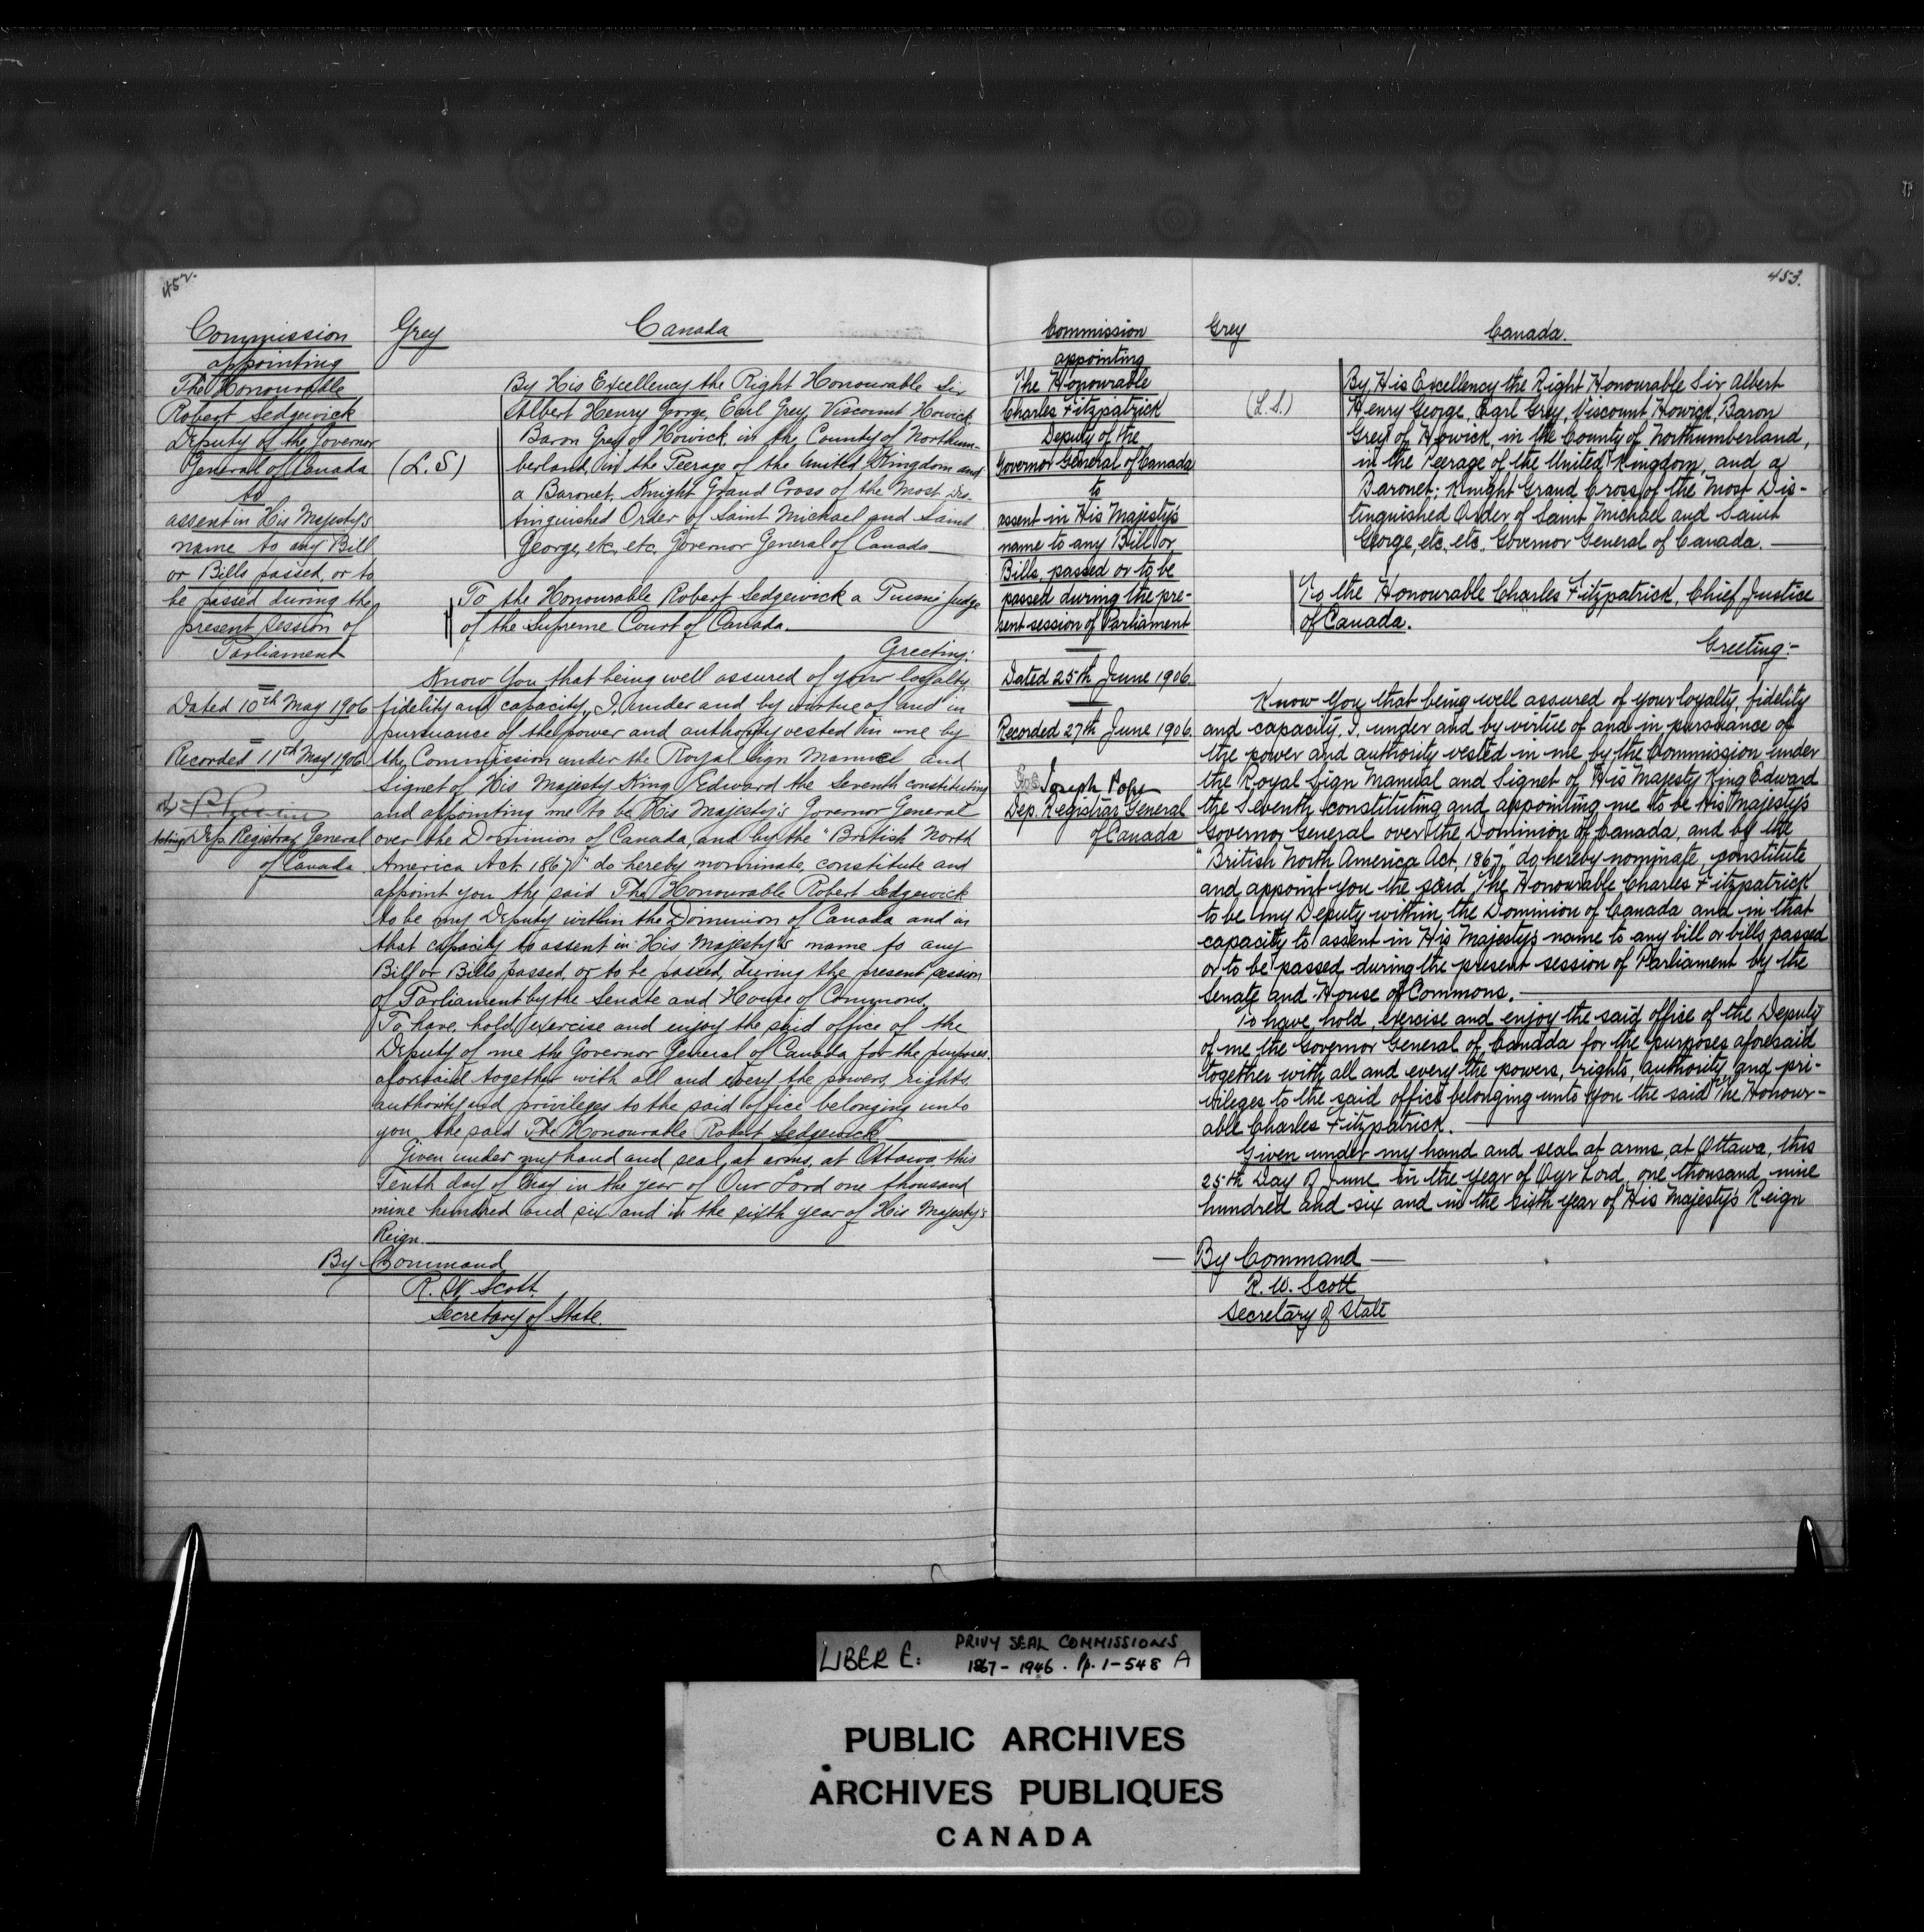 452.
Commission
appointing
The Honourable
Robert Sedgewick
Deputy of the Governor
General of Canada
to
assent in His Majesty's
name to any Bill
or Bills passed, or to
be passed during the
present session of
Parliament
Dated 10th May 1906
Recorded 11th May 1906
Acting Dep. Registrar General
of Canada.
Grey
Canada
(L.S)
By His Excellency the Right Honourable Sir
Albert Henry George, Earl Grey, Viscount Howick,
Baron Grey of Howick, in the County of Northum-
berland, in the Peerage of the United Kingdom and
a Baronet, Knight Grand Cross of the Most Dis-
tinguished Order of Saint Michael and Saint
George, etc, etc, Governor General of Canada
To the Honourable Robert Sedgewick a Puisné Judge
of the Supreme Court of Canada.
Greeting:
Know You that being well assured of your loyalty,
fidelity and capacity, I, under and by virtue of and in
pursuance of the power and authority vested in me by
the Commission under the Royal Sign Manual and
Signet of His Majesty King Edward the Seventh constituting
and appointing me to be His Majesty's Governor General
over the Dominion of Canada, and by the "British North
America Act. 1867," do hereby nominate, constitute and
appoint you the said The Honourable Robert Sedgewick
to be my Deputy within the Dominion of Canada and in
that capacity to assent in His Majesty's name to any
Bill or Bills passed, or to be passed, during the present session
of Parliament by the Senate and House of Commons.
To have, hold, exercise and enjoy the said office of the
Deputy of me the Governor General of Canada for the purposes
aforesaid together with all and every the powers, rights,
authority and privileges to the said office belonging unto
you the said The Honourable Robert Sedgewick
Given under my hand and seal, at arms, at Ottawa, this
Tenth day of May in the year of Our Lord one thousand
nine hundred and six and in the sixth year of His Majesty's
Reign.
By Command
R. W. Scott.
Secretary of State.
453.
Commission
appointing
The Honourable
Charles Fitzpatrick
Deputy of the
Governor General of Canada
to
assent in His Majesty's
name to any Bill or
Bills, passed or to be
passed during the pre-
sent session of Parliament
Dated 25th June 1906.
Recorded 27th June 1906.
Joseph Pope
Dep. Registrar General
of Canada
Grey
Canada.
(L.S.)
By His Excellency the Right Honourable Sir Albert
Henry George, Earl Grey, Viscount Howick, Baron
Grey of Howick, in the County of Northumberland,
in the Peerage of the United Kingdom, and a
Baronet; Knight Grand Cross of the Most Dis-
tinguished Order of Saint Michael and Saint
George, etc, etc, Governor General of Canada.
To the Honourable Charles Fitzpatrick, Chief Justice
of Canada.
Greeting:-
Know You that being well assured of your loyalty, fidelity
and capacity, I, under and by virtue of and in pursuance of
the power and authority vested in me by the Commission under
the Royal Sign Manual and Signet of His Majesty King Edward
the Seventh, constituting and appointing me to be His Majesty's
Governor General over the Dominion of Canada, and by the
"British North America Act, 1867," do hereby nominate, constitute
and appoint you the said The Honourable Charles Fitzpatrick
to be my Deputy within the Dominion of Canada and in that
capacity to assent in His Majesty's name to any bill or bills passed
or to be passed, during the present session of Parliament by the
Senate and House of Commons.
To have, hold, exercise and enjoy the said office of the Deputy
of me the Governor General of Canada for the purposes aforesaid
together with all and every the powers, rights, authority and pri-
vileges to the said office belonging unto you the said The Honour-
able Charles Fitzpatrick.
Given under my hand and seal at arms, at Ottawa, this
25th Day of June in the year of Our Lord, one thousand nine
hundred and six and in the sixth year of His Majesty's Reign
By Command
R. W. Scott
Secretary of State
LIBER E:
PRIVY SEAL COMMISSIONS
1867-1946. Pp. 1-548 A
PUBLIC ARCHIVES
ARCHIVES PUBLIQUES
CANADA